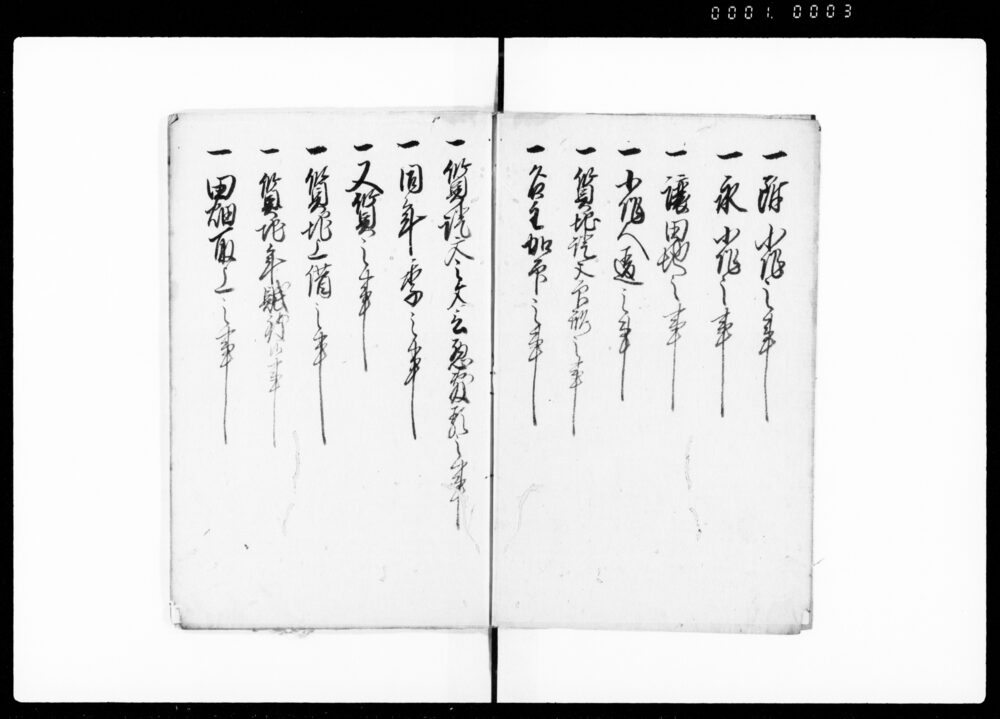 0001. 0003
一 別小作之事
一 永小作之事
一 譲田地之事
一 小作人遁之事
一 質地証文印形之事
一 名主加印之事
一 質地証文之文言
一 同年季之事
一 又質之事
一 質地上借之事
一 質地年賦
一 田畑取上之事